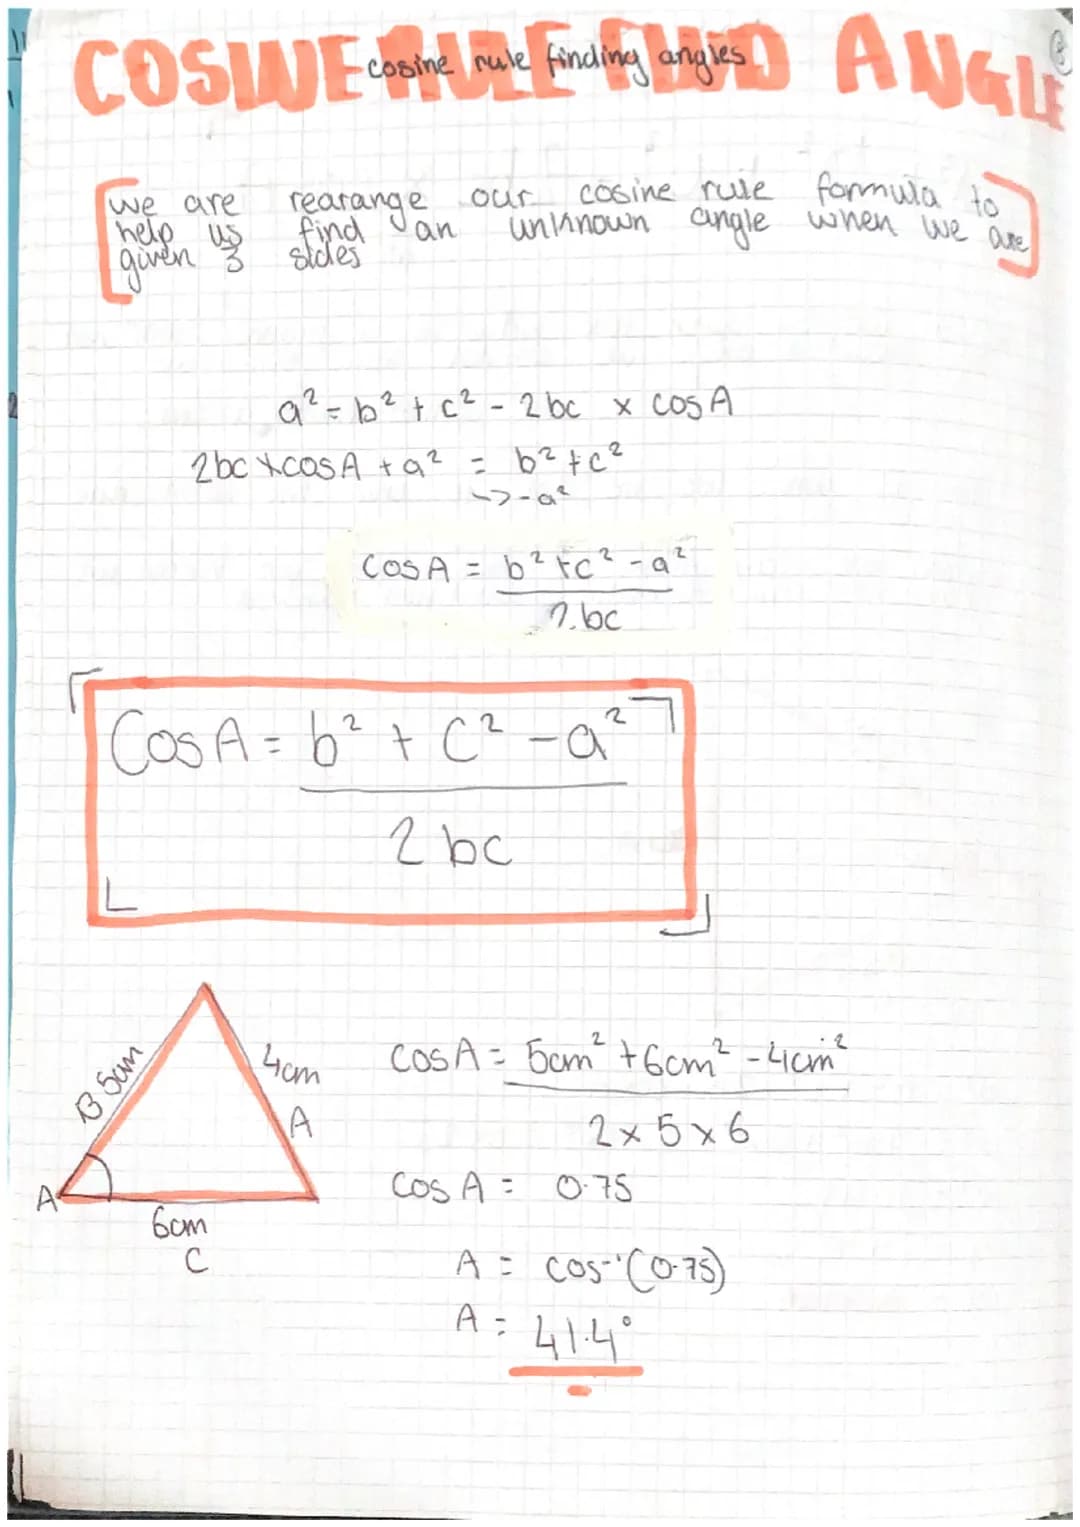 COSINE RULE FIND ANGLE
cosine rule finding angles
we are rearange our cosine rule formula to
help us find an unknown angle when we are
given 3 sides
a² = b² + c² - 2bc x cosA
2bc x cosA + a² = b² + c²
↳ -a²
cosA = b² + c² - a²
2bc
CosA = b² + c² - a²
2bc
B 5cm
4cm
A
A
6cm
C
cosA = 5cm² + 6cm² - 4cm²
2 x 5 x 6
cosA = 0.75
A = cos⁻¹(0.75)
A = 41.4°